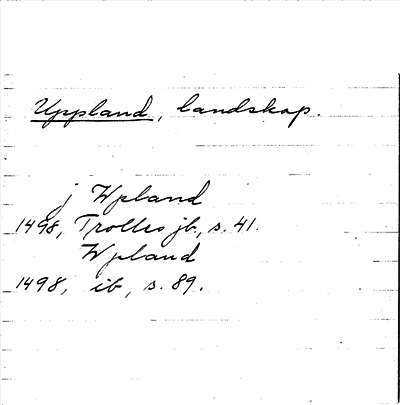 Uppland, landskap.
j Wpland
1498, Trolles jb, s. 41.
Wpland
1498, ib, s. 89.